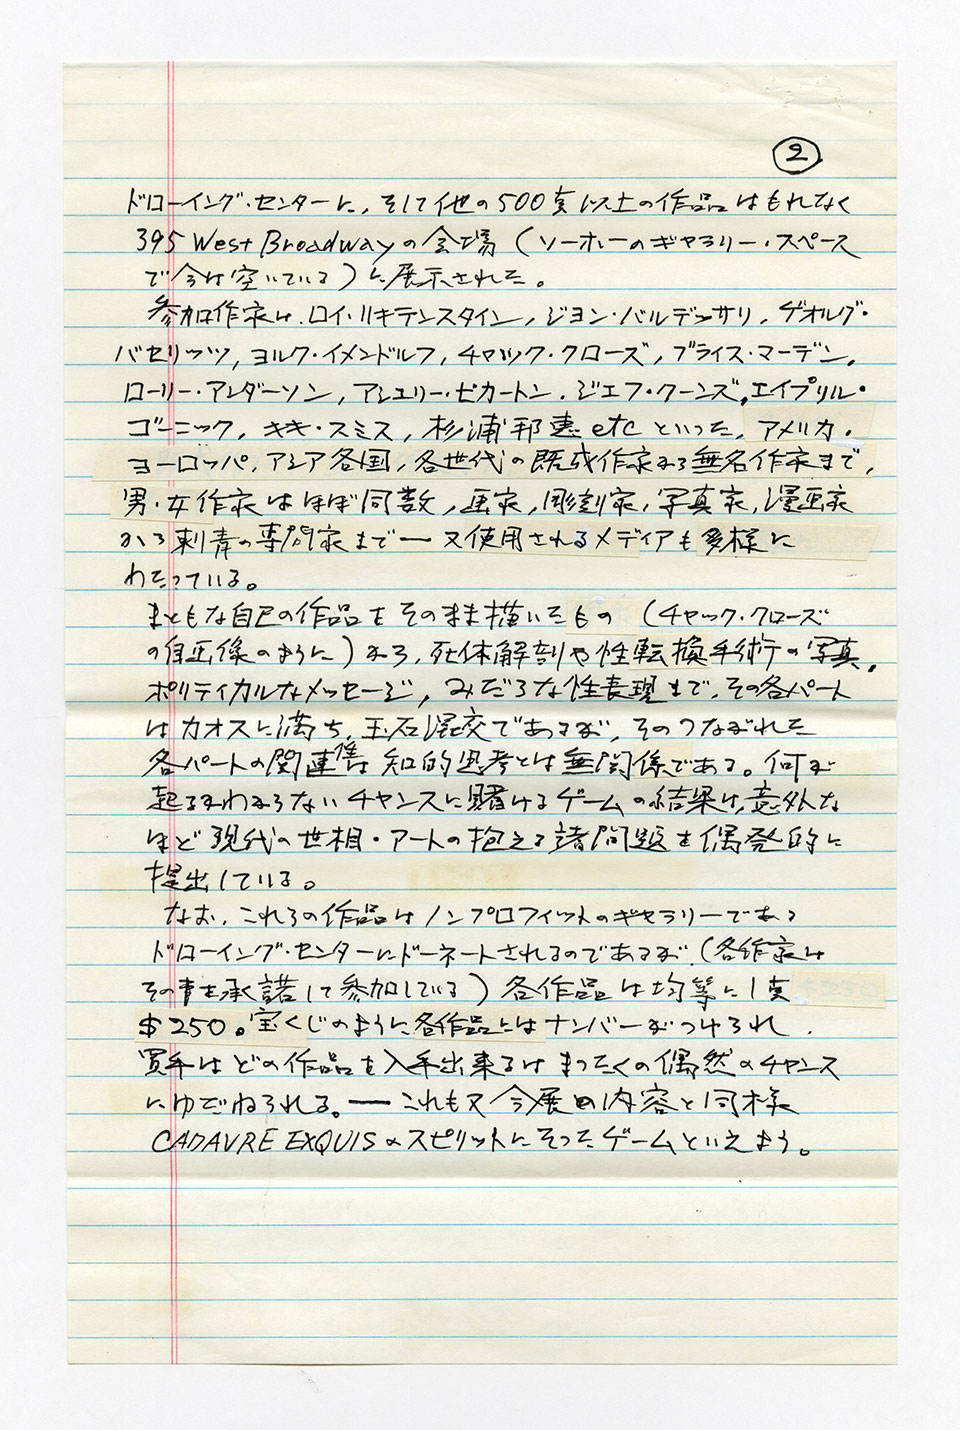 2
ドローイング・センターに、そして他の500点以上の作品はもれなく
395 West Broadwayの会場(ソーホーのギャラリー・スペース
で今は空いている)に展示された。
参加作家は、ロイ・リキテンスタイン, ジョン・バルデッサリ, ゲオルグ・
バセリッツ, ヨルク・イメンドルフ, チャック・クローズ, ブライス・マーデン,
ローリー・アンダーソン, アシュリー・ビカートン, ジェフ・クーンズ, エイプリル・
ゴーニック, キキ・スミス, 杉浦邦恵 etc といった, アメリカ・
ヨーロッパ, アジア各国, 各世代の既成作家から無名作家まで,
男・女作家はほぼ同数, 画家, 彫刻家, 写真家, 漫画家
から刺青の専門家まで—又使用されるメディアも多様に
わたっている。
まともな自己の作品をそのまま描いたもの (チャック・クローズ
の自画像のように) から, 死体解剖や性転換手術の写真,
ポリティカルなメッセージ, みだらな性表現まで, その各パート
はカオスに満ち, 玉石混交であるが, そのつながれた
各パートの関連性は知的思考とは無関係である。何が
起るかわからないチャンスに賭けるゲームの結果は, 意外な
ほど現代の世相・アートの抱える諸問題を偶発的に
提出している。
なお, これらの作品はノンプロフィットのギャラリーである
ドローイング・センターにドーネートされるのであるが, (各作家は
その旨を承諾して参加している) 各作品は均等に1点
$250。宝くじのように各作品にはナンバーがつけられ,
買手はどの作品を入手出来るはまったくの偶然のチャンス
にゆだねられる。—これも又今展の内容と同様
CADAVRE EXQUISのスピリットにそったゲームといえよう。